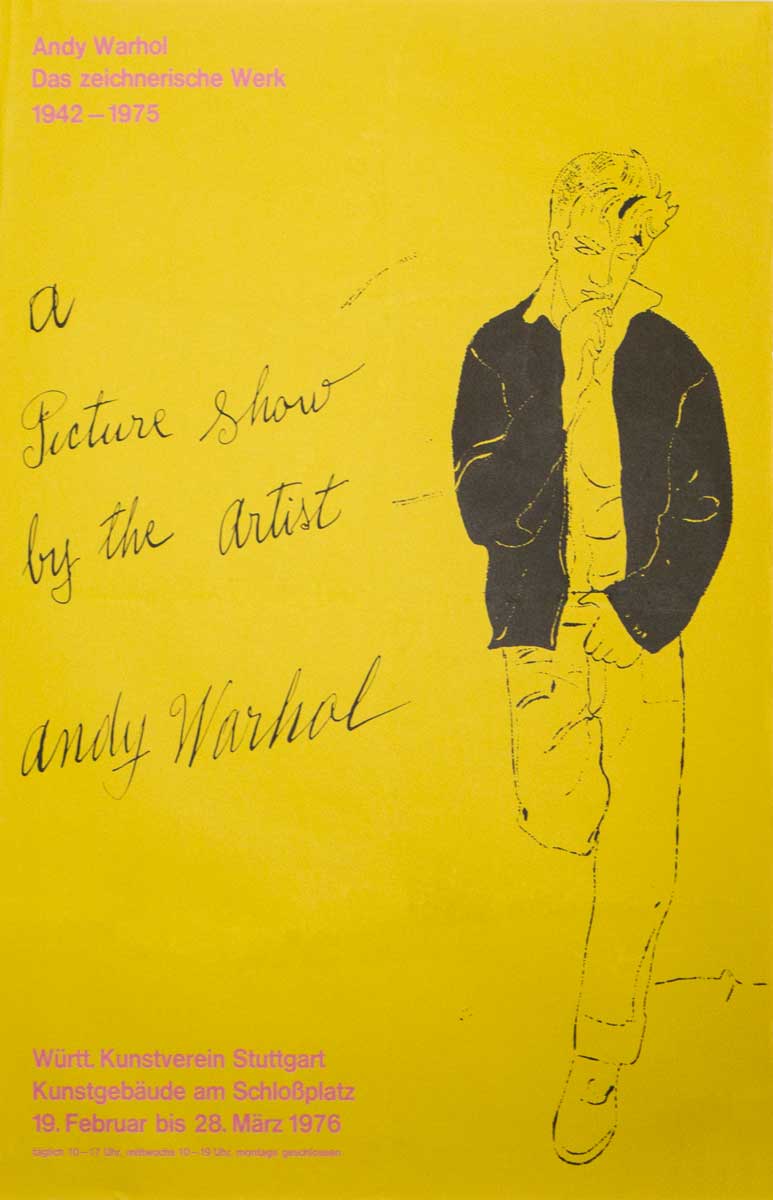 Andy Warhol
Das zeichnerische Werk
1942–1975
a
Picture show
by the artist
andy Warhol
Württ. Kunstverein Stuttgart
Kunstgebäude am Schloßplatz
19. Februar bis 28. März 1976
täglich 10–17 Uhr, mittwochs 10–19 Uhr, montags geschlossen